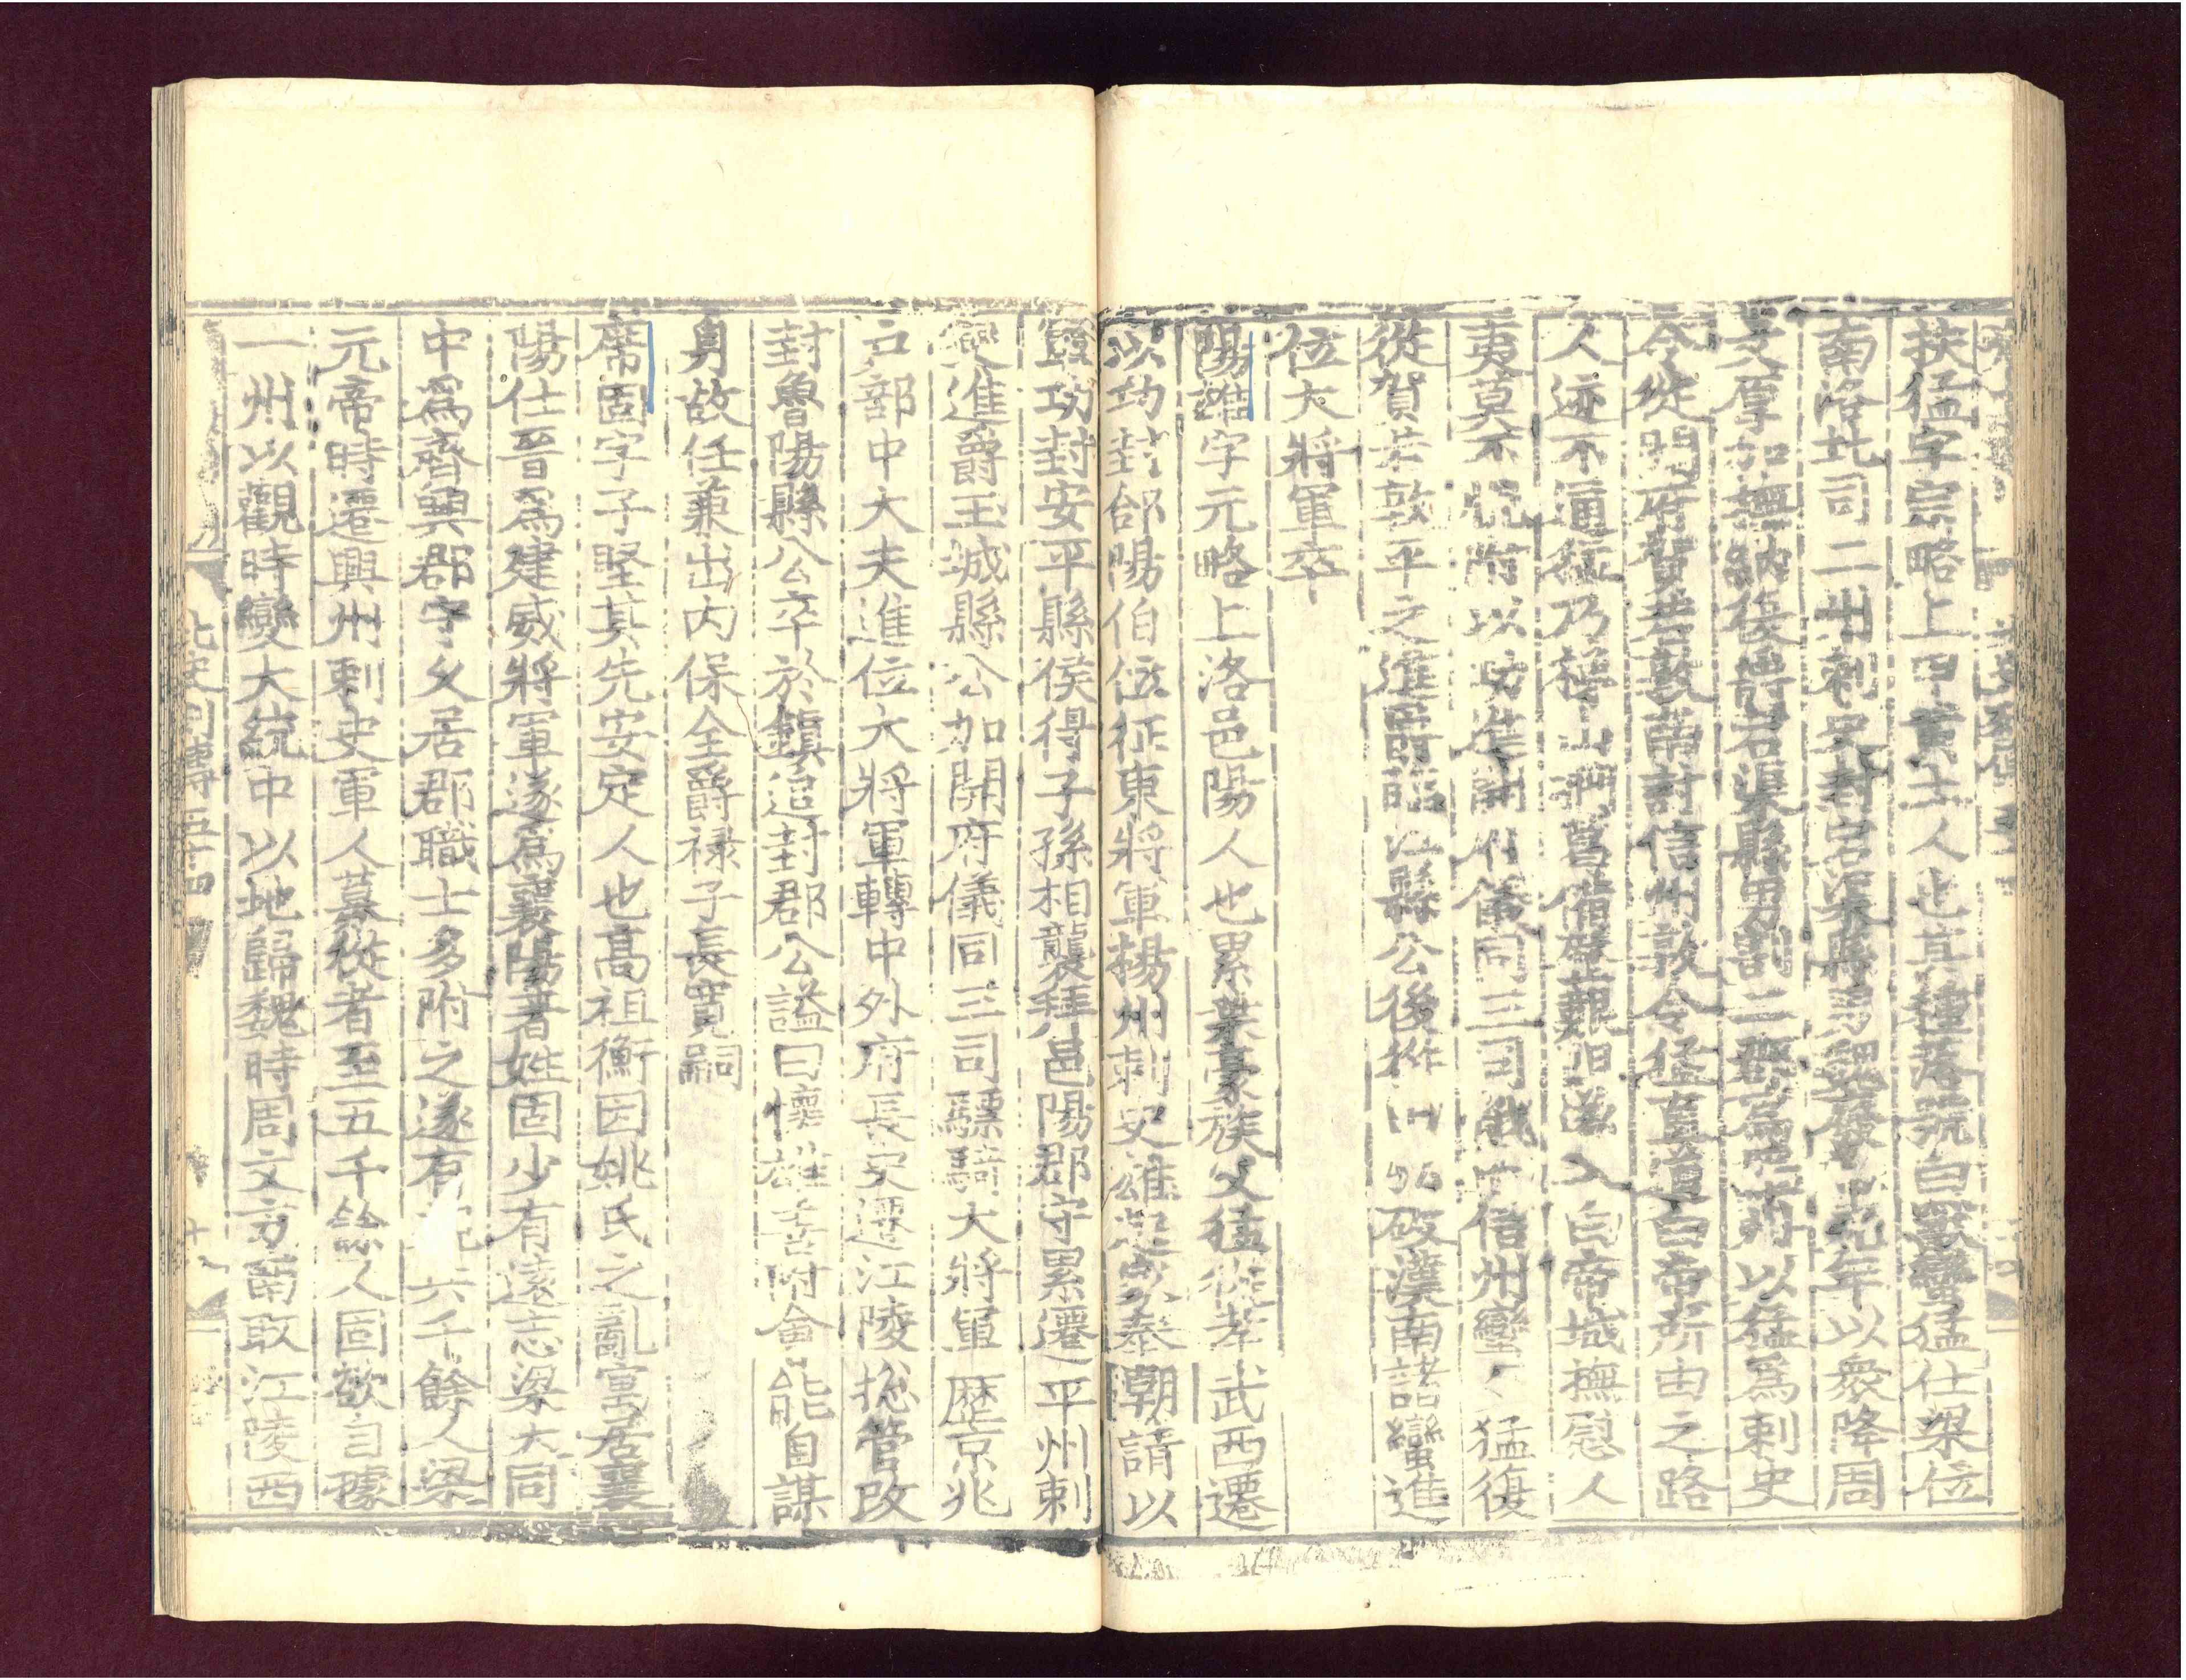 扶猛字宗略上甲黄土人也其種落號白獸蠻猛仕梁位
南洛北司二州刺史封宕渠縣男魏廢帝元年以衆降周
文厚加撫納復爵宕渠縣男割二郡爲州以猛爲刺史
令從開府賀若敦南討信州敦令猛直道白帝所由之路
人迹不通猛乃梯山捫葛備歷艱阻遂入白帝城撫慰人
夷莫不悦附以功進開府儀同三司俄而信州蠻猛復
從賀若敦平之進爵臨江縣公後從破漢南諸蠻進
位大將軍卒
陽雄字元略上洛邑陽人也累葉豪族父猛從孝武西遷
以功封郃陽伯位征東將軍揚州刺史雄起家奉朝請以
功封安平縣侯得子孫相襲拜邑陽郡守累遷平州刺
史進爵玉城縣公加開府儀同三司驃騎大將軍歷京兆
户部中大夫進位大將軍轉中外府長史遷江陵揔管改
封魯陽縣公卒於鎮追封郡公謚曰懷雄善附會能自謀
身故任兼出内保全爵禄子長寛嗣
席固字子堅其先安定人也高祖衡因姚氏之亂寓居襄
陽仕晋爲建威將軍遂爲襄陽著姓固少有遠志梁大同
中爲齊興郡守久居郡職士多附之遂有六千餘人梁
元帝時遷興州刺史軍人慕從者至五千餘人固欲自據
一州以觀時變大統中以地歸魏時周文方南取江陵西
北史列傳五十四
十八